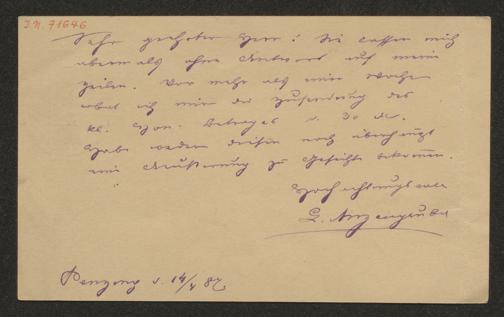 J.N. 71646
Sehr geehrter Herr! Sie lassen mich
abermals ohne Antwort auf meine
Zeilen. Vor mehr als einer Woche
erbat ich mir die Zusendung des
kl. Hon. Betrages v. 30 M.
Habe weder diesen noch überhaupt
eine Äußerung zu Gesichte bekommen.
Hochachtungsvoll
L. Anzengruber
Penzing d. 14/ 87